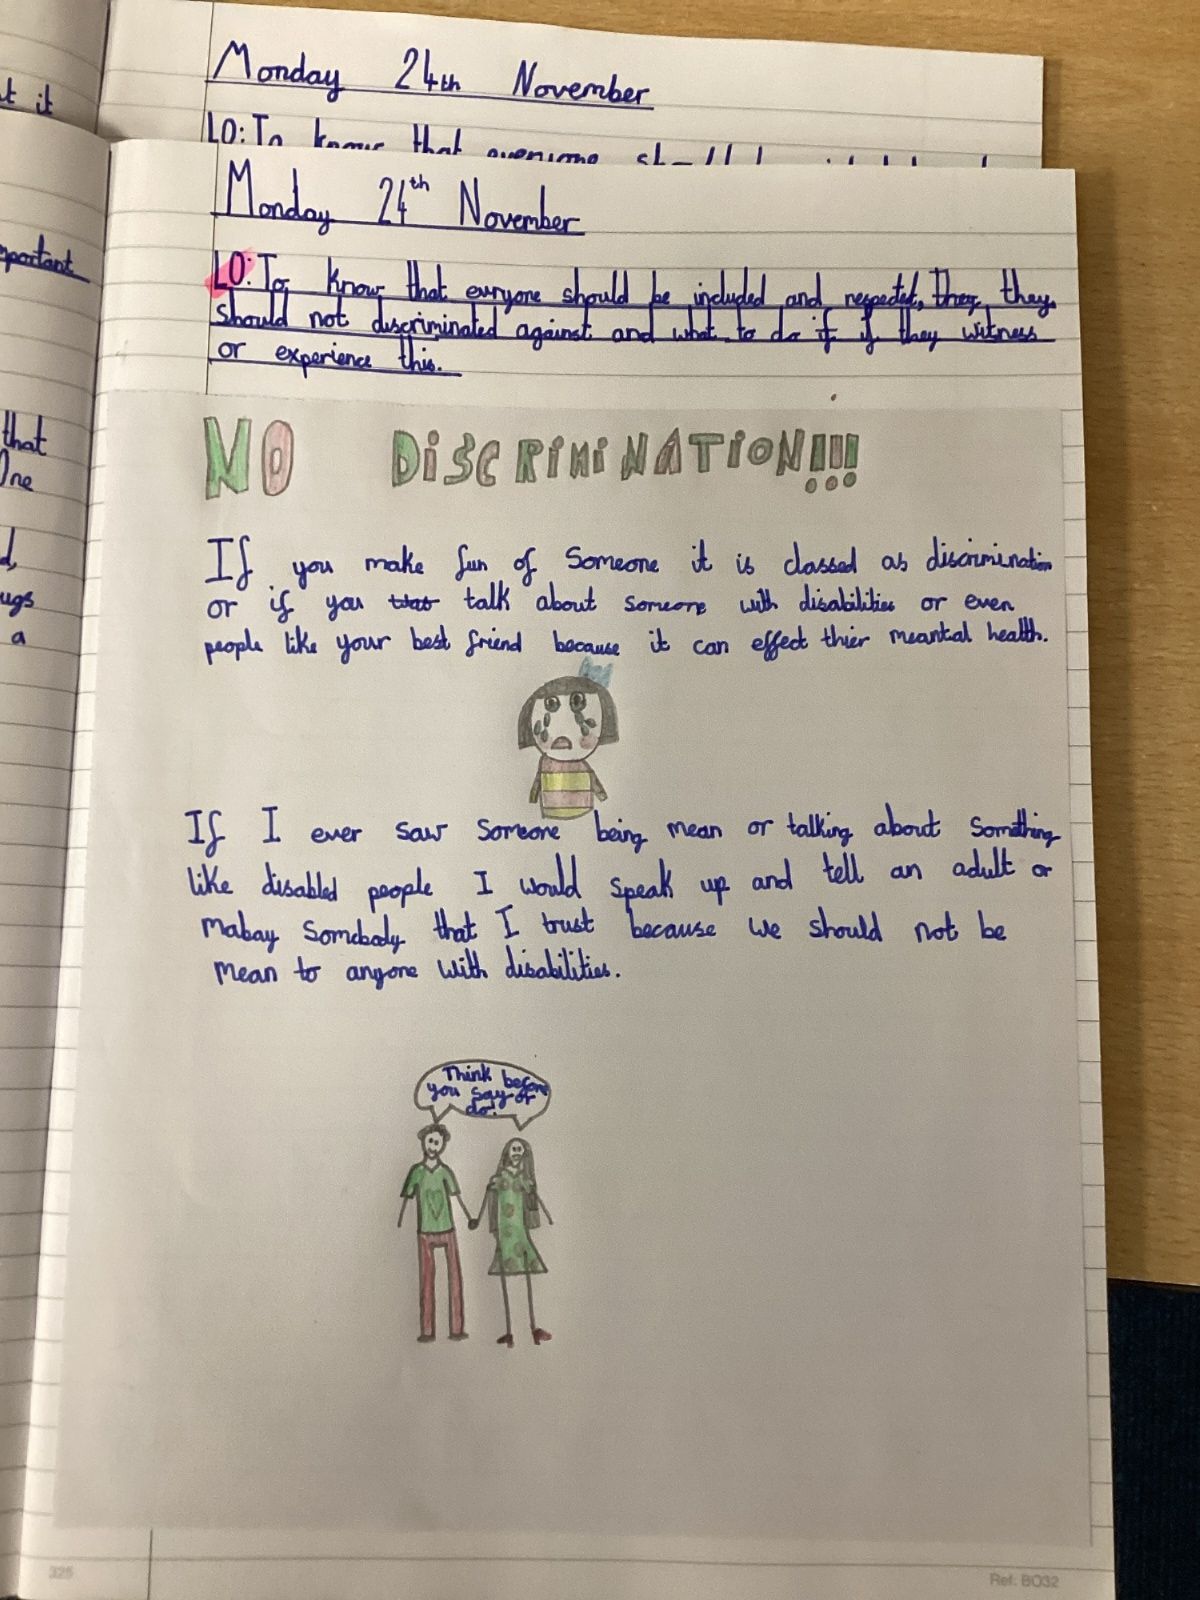 t it
mportant
that
One
d,
ugs
a
Monday 24th November
LO: To know that everyone
Monday 24th November
LO: To know that everyone should be included and respected, They they
should not discriminated against and what to do if if they witness
or experience this.
NO DISCRIMINATION!!!
If you make fun of someone it is classed as discrimination
or if you talk about someone with disabilities or even
people like your best friend because it can effect thier meantal health.
If I ever saw someone being mean or talking about something
like disabled people I would speak up and tell an adult or
mabay somebody that I trust because we should not be
mean to anyone with disabilities.
Think before
you say or
do!
325
Ref: BO32